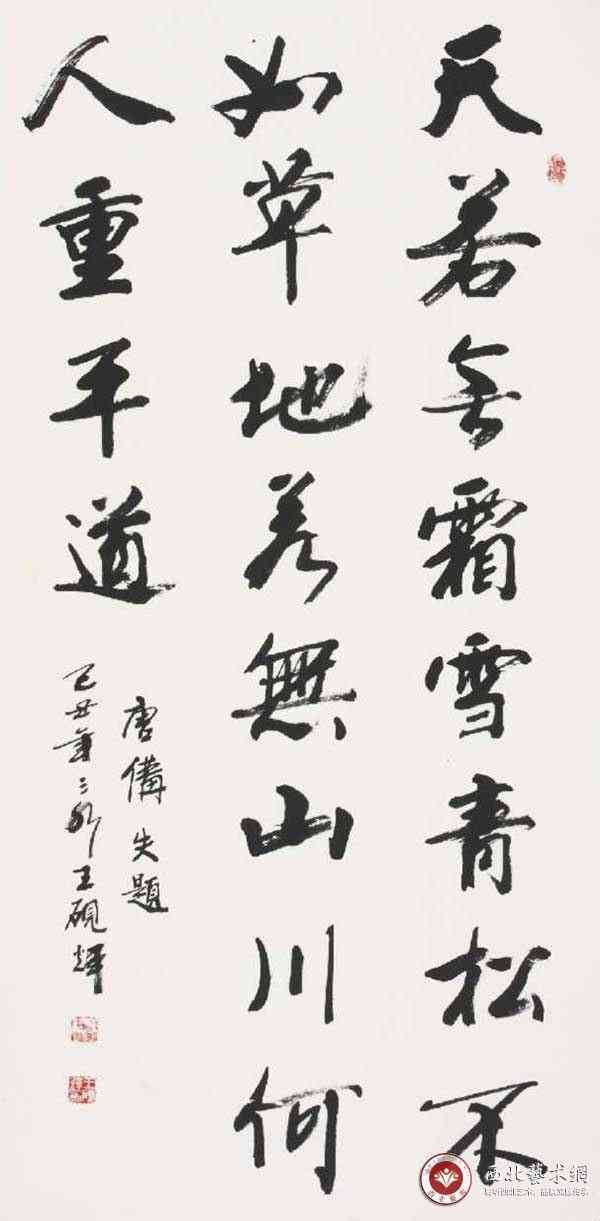 天若無霜雪青松不
如草地若無山川何
人重平道
唐備失題
己丑年王硯輝
西北藝术網